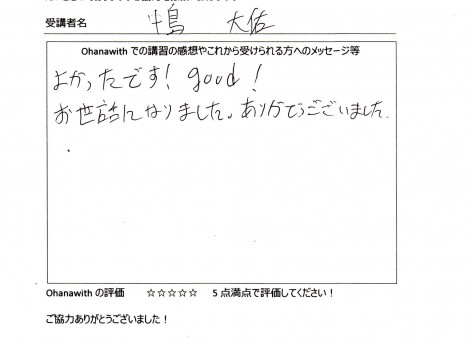 受講者名 中島 大佑
Ohanawith での講習の感想やこれから受けられる方へのメッセージ等
よかったです! good!
お世話になりました。ありがとうございました.
Ohanawith の評価 ☆☆☆☆☆ 5 点満点で評価してください!
ご協力ありがとうございました!